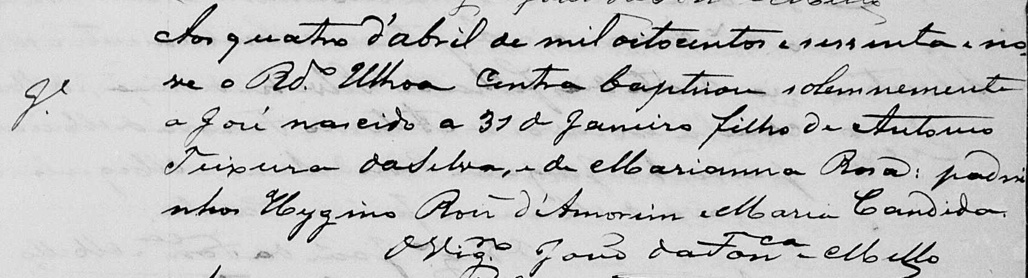 Aos quatro d'abril de mil oitocentos e sessenta e no-
ve o Rdo. Ulhoa Cintra baptisou solemnemente
Je
a José nascido a 31 de Janeiro filho de Antonio
Teixeira da Silva, e de Marianna Rosa: padri
nhos Hygino Roiz d'Amorim e Maria Candida.
O Vigro. João da Fonca e Mello